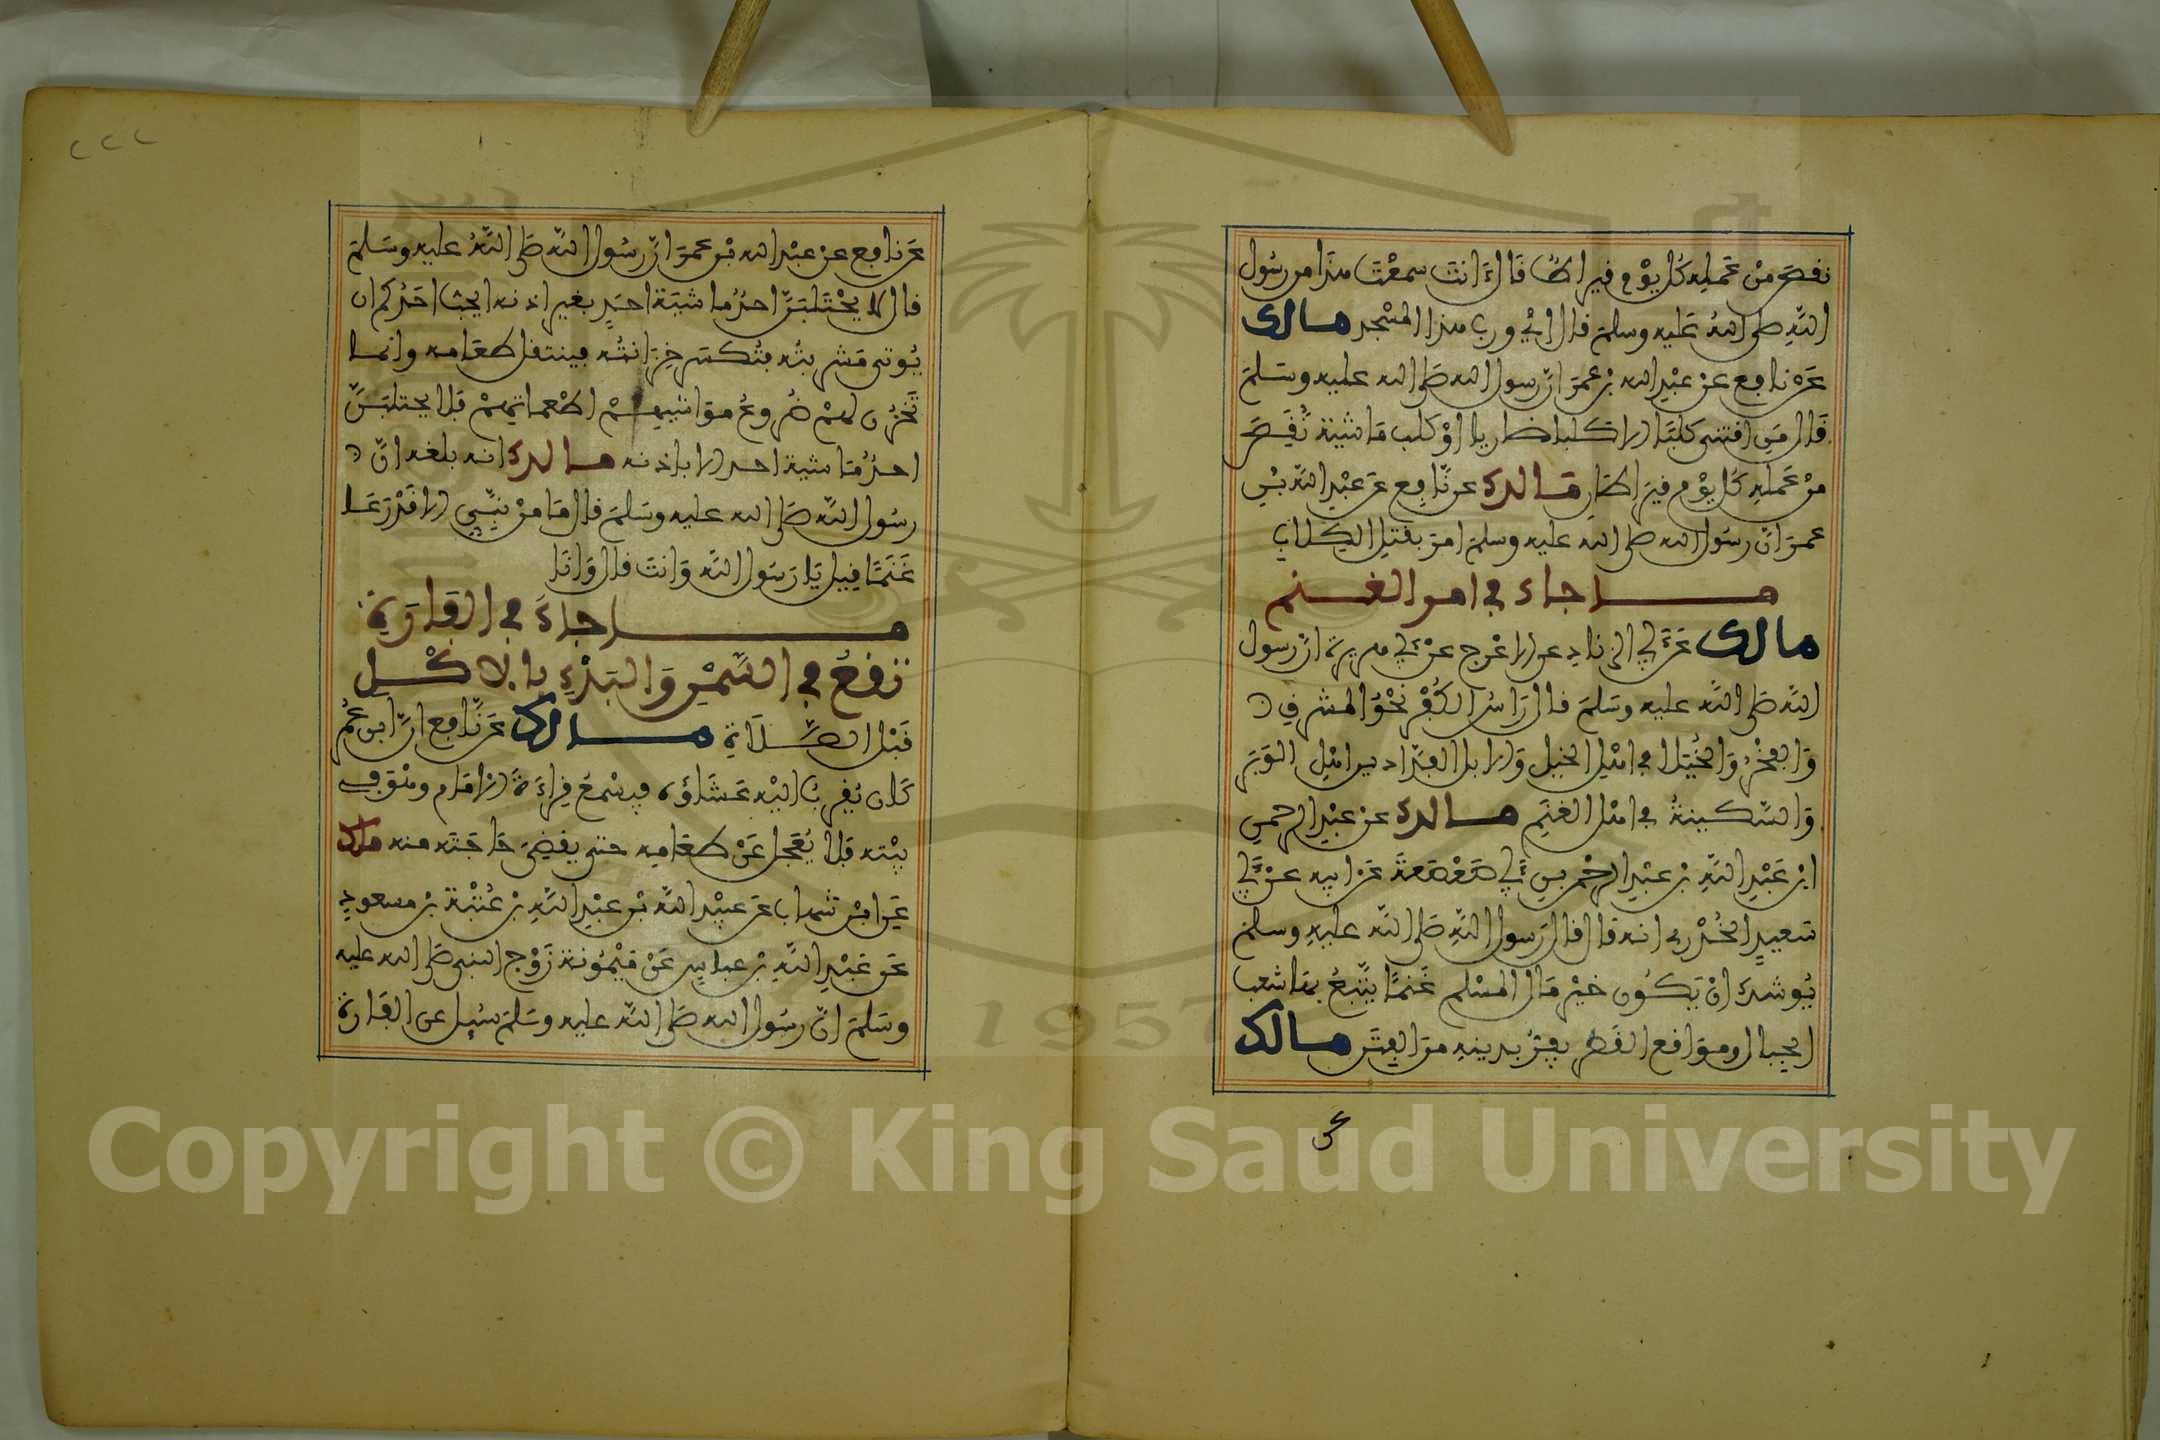 نقص من عمله كل يوم قيراط قال أنت سمعت هذا من رسول
الله صلى الله عليه وسلم قال إي ورب هذا المسجد مالك
عن نافع عن عبد الله بن عمر أن رسول الله صلى الله عليه وسلم
قال من اقتنى كلبا إلا كلبا ضاريا أو كلب ماشية نقص
من عمله كل يوم قيراطان مالك عن نافع عن عبد الله بن
عمر أن رسول الله صلى الله عليه وسلم أمر بقتل الكلاب
ما جاء في أمر الغنم
مالك عن أبي الزناد عن الأعرج عن أبي هريرة أن رسول
الله صلى الله عليه وسلم قال رأس الكفر نحو المشرق
والفخر والخيلا في أهل الخيل والإبل الفدادين أهل الوبر
والسكينة في أهل الغنم مالك عن عبد الرحمن
ابن عبد الله بن عبد الرحمن بن أبي صعصعة عن أبيه عن أبي
سعيد الخدري أنه قال قال رسول الله صلى الله عليه وسلم
يوشك أن يكون خير مال المسلم غنما يتبع بها شعب
الجبال ومواقع القطر يفر بدينه من الفتن مالك
عن
٢٢٢
عن نافع عن عبد الله بن عمر أن رسول الله صلى الله عليه وسلم
قال لا يحتلبن أحد ماشية أحد بغير إذنه أيحب أحدكم أن
يوتى مشربته فتكسر خزانته فينتقل طعامه وإنما
تخزن لهم ضروع مواشيهم أطعماتهم فلا يحتلبن
أحد ماشية أحد إلا بإذنه مالك أنه بلغه أن
رسول الله صلى الله عليه وسلم قال ما من نبي إلا قد رعا
غنما قيل يا رسول الله وأنت قال وأنا
ما جاء في الفارة
تقع في السمن والبدء بالأكل
قبل الصلاة مالك عن نافع أن ابن عمر
كان يقرب إليه عشاؤه فيسمع قراءة الإمام وهو في
بيته فلا يعجل عن طعامه حتى يقضي حاجته منه مالك
عن ابن شهاب عن عبيد الله بن عبد الله بن عتبة بن مسعود
عن عبد الله بن عباس عن ميمونة زوج النبي صلى الله عليه
وسلم أن رسول الله صلى الله عليه وسلم سئل عن الفارة
1957
Copyright © King Saud University